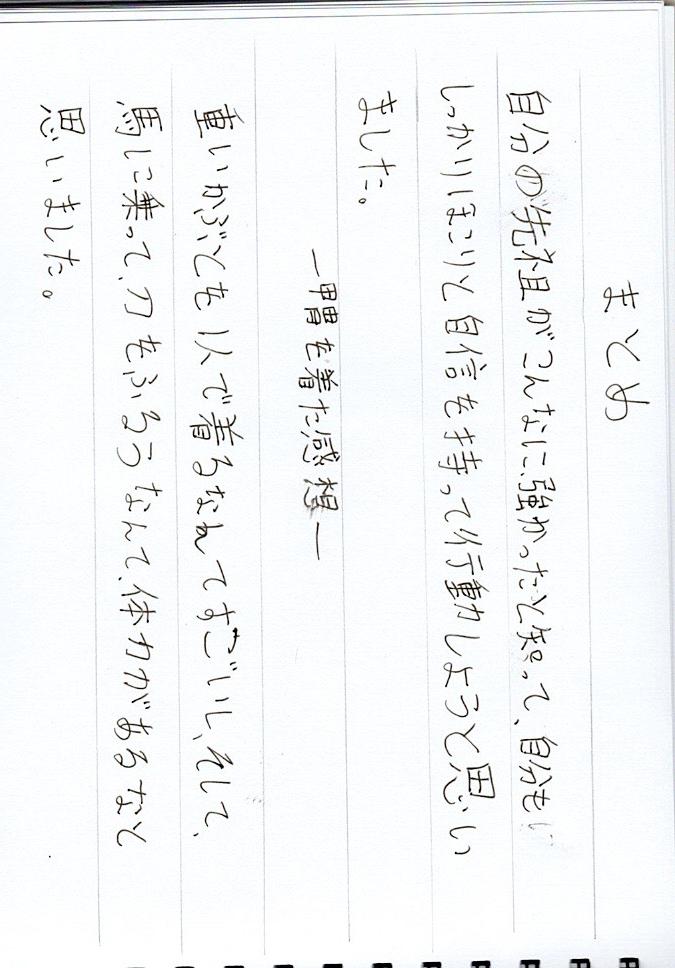 まとめ
自分の先祖がこんなに強かったと知って、自分も
しっかりほこりと自信を持って行動しようと思い
ました。
―甲冑を着た感想―
重いかぶとも1人で着るなんてすごいし、そして、
馬に乗って、刀もふるうなんて、体力があるなと
思いました。